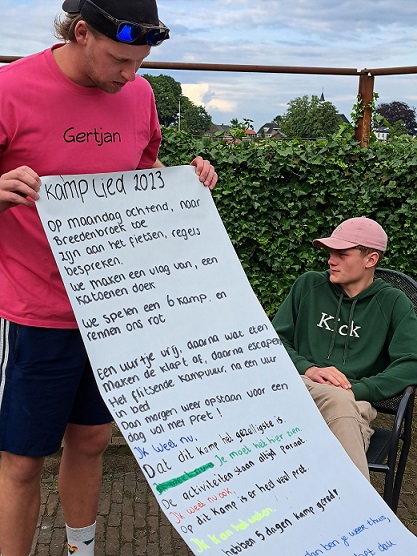 Gertjan
Kamplied 2023
Op maandag ochtend, naar
Breedenbroek toe
Zijn aan het fietsen, regels
bespreken.
We maken een vlag van, een
katoenen doek
We spelen een 6 kamp. en
rennen ons rot
Een uurtje vrij, daarna wat eten
Maken de klapt af, daarna escapen
Het flitsende kampvuur, na een uur
in bed
Dan morgen weer opstaan voor een
dag vol met Pret!
Ik weet nu,
Dat dit kamp het gezelligste is.
Ik moet het hier zien
De activiteiten staan altijd Paraat.
Ik weet nu ook,
Op dit kamp is er heel veel pret.
Ik kan het
hebben 5 dagen kamp gered!!
ben je weer thuis,
dau
Kick